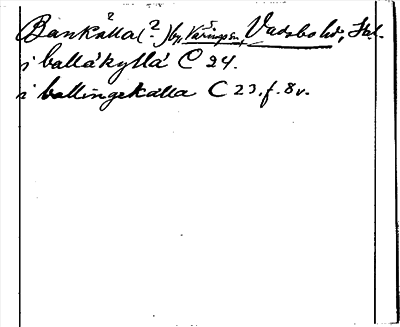 Bankälla (?) by, Väring sn, Vadsbo hd, Skal.
i ballåkyllå C 24.
i ballingekälla C 23. f. 8v.